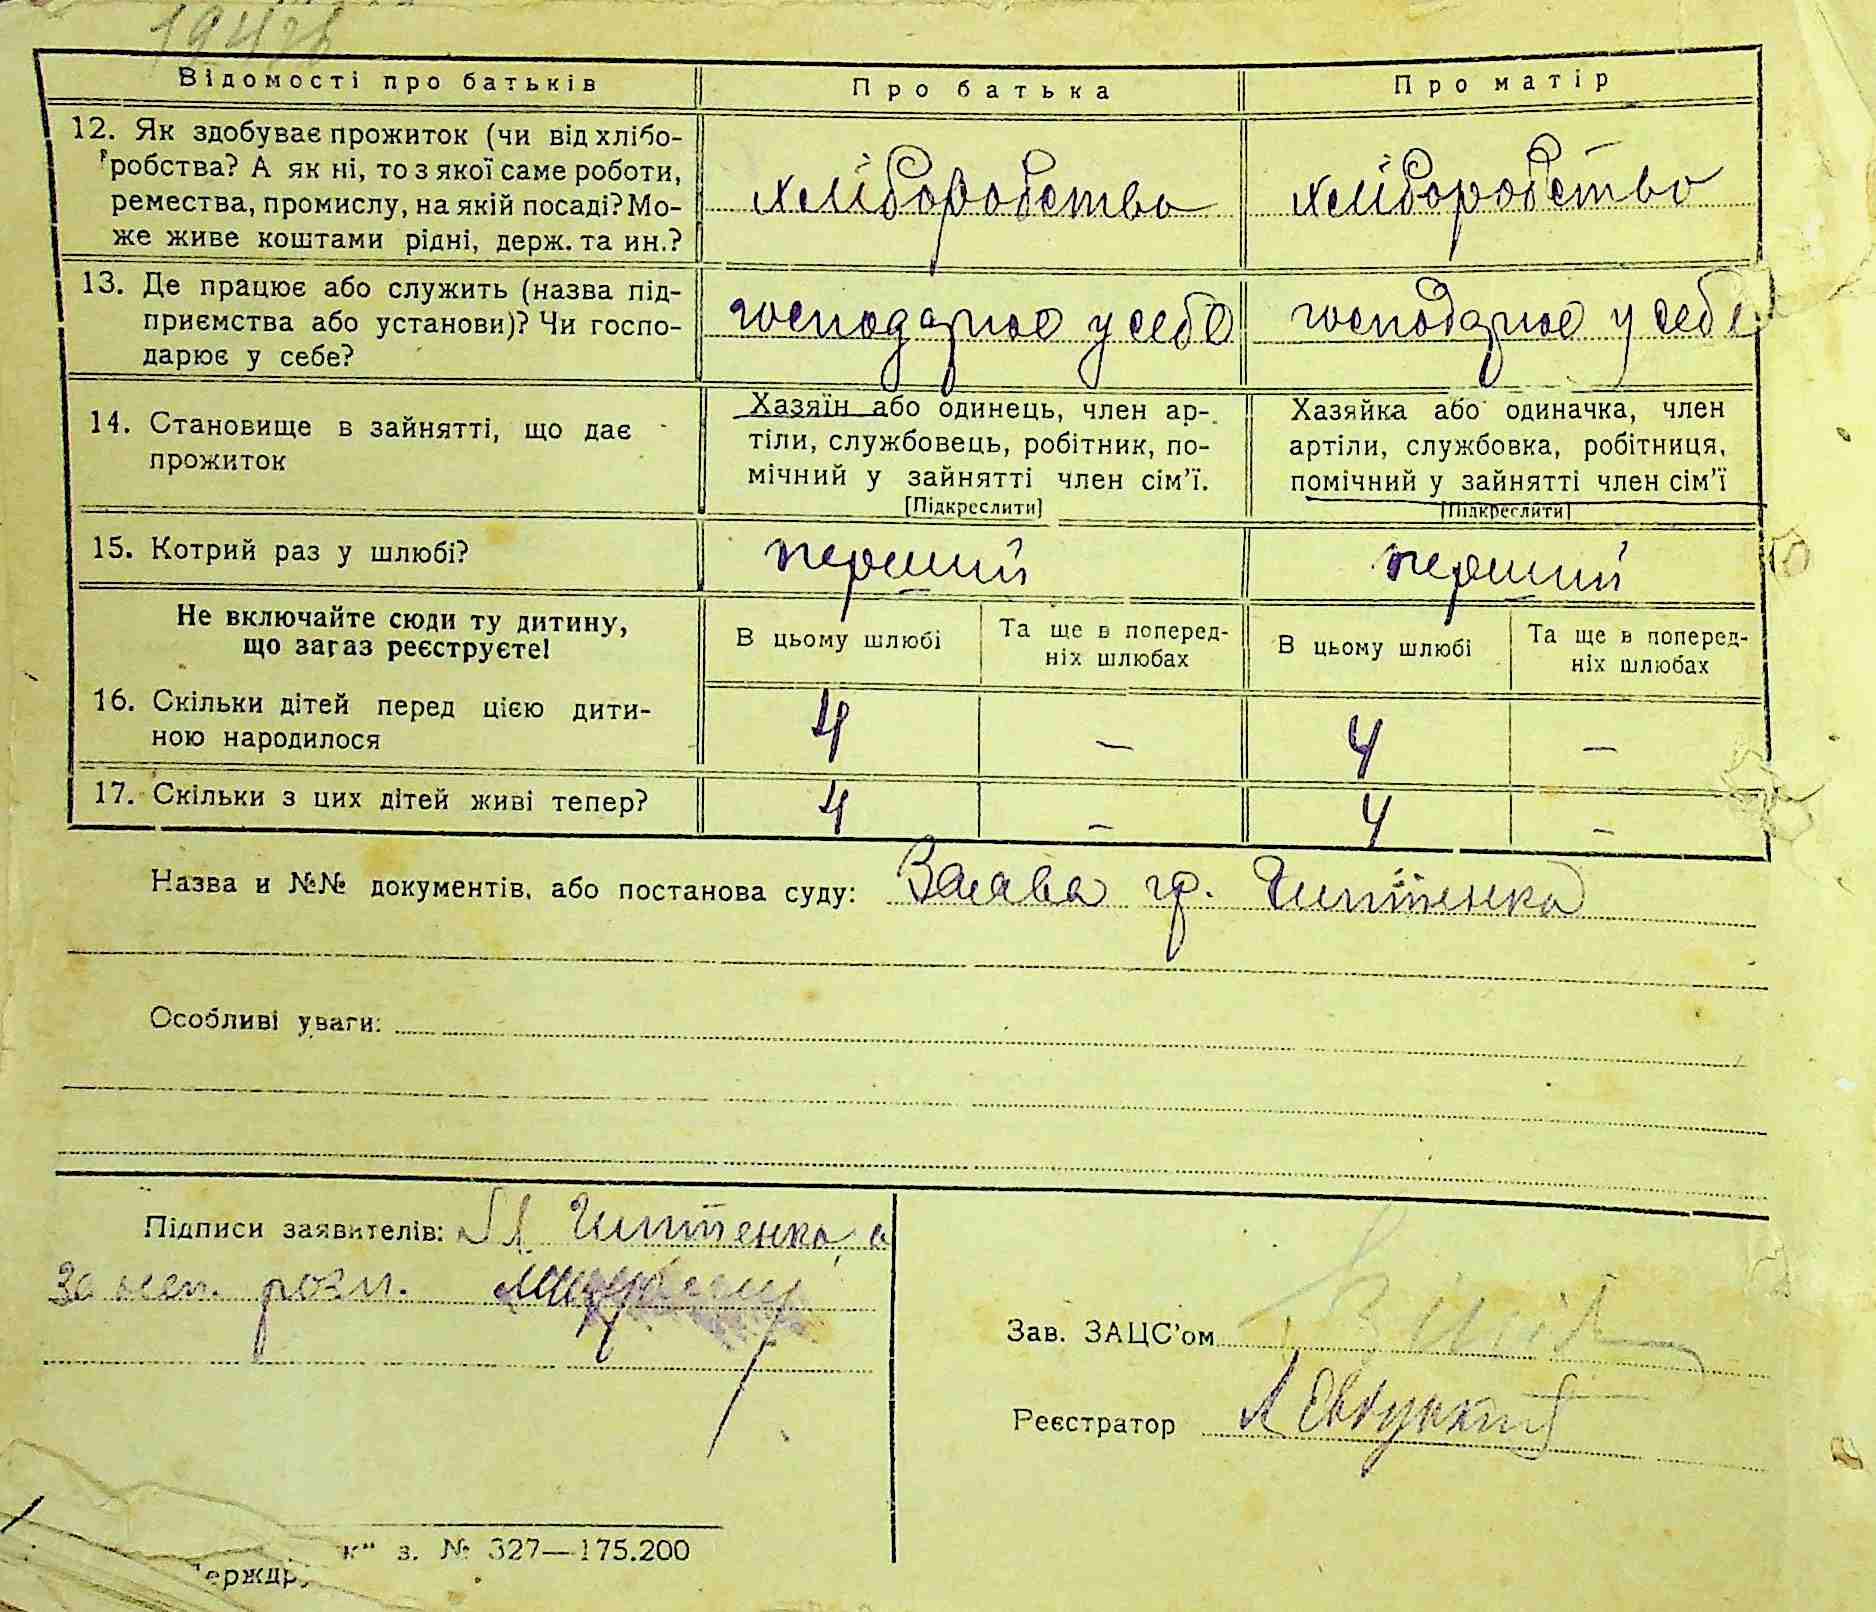 Відомості про батьків Про батька Про матір
12. Як здобуває прожиток (чи від хлібо-
робства? А як ні, то з якої саме роботи,
ремества, промислу, на якій посаді? Мо-
же живе коштами рідні, держ. та ин.?
хліборобство хліборобство
13. Де працює або служить (назва під-
приємства або установи)? Чи госпо-
дарює у себе?
господарює у себе господарює у себе
14. Становище в зайнятті, що дає
прожиток
Хазяїн або одинець, член ар-
тіли, службовець, робітник, по-
мічний у зайнятті член сім’ї.
[Підкреслити]
Хазяйка або одиначка, член
артіли, службовка, робітниця,
помічний у зайнятті член сім’ї
[Підкреслити]
15. Котрий раз у шлюбі? перший перший
Не включайте сюди ту дитину,
що загаз реєструєте!
В цьому шлюбі
Та ще в поперед-
ніх шлюбах
В цьому шлюбі
Та ще в поперед-
ніх шлюбах
16. Скільки дітей перед цією дити-
ною народилося
4 — 4 —
17. Скільки з цих дітей живі тепер? 4 – 4 –
Назва и №№ документів, або постанова суду: Заява гр.
Особливі уваги:
Підписи заявителів:
за неп. розп.
Зав. ЗАЦС’ом
Реєстратор
к“ з. № 327—175.200